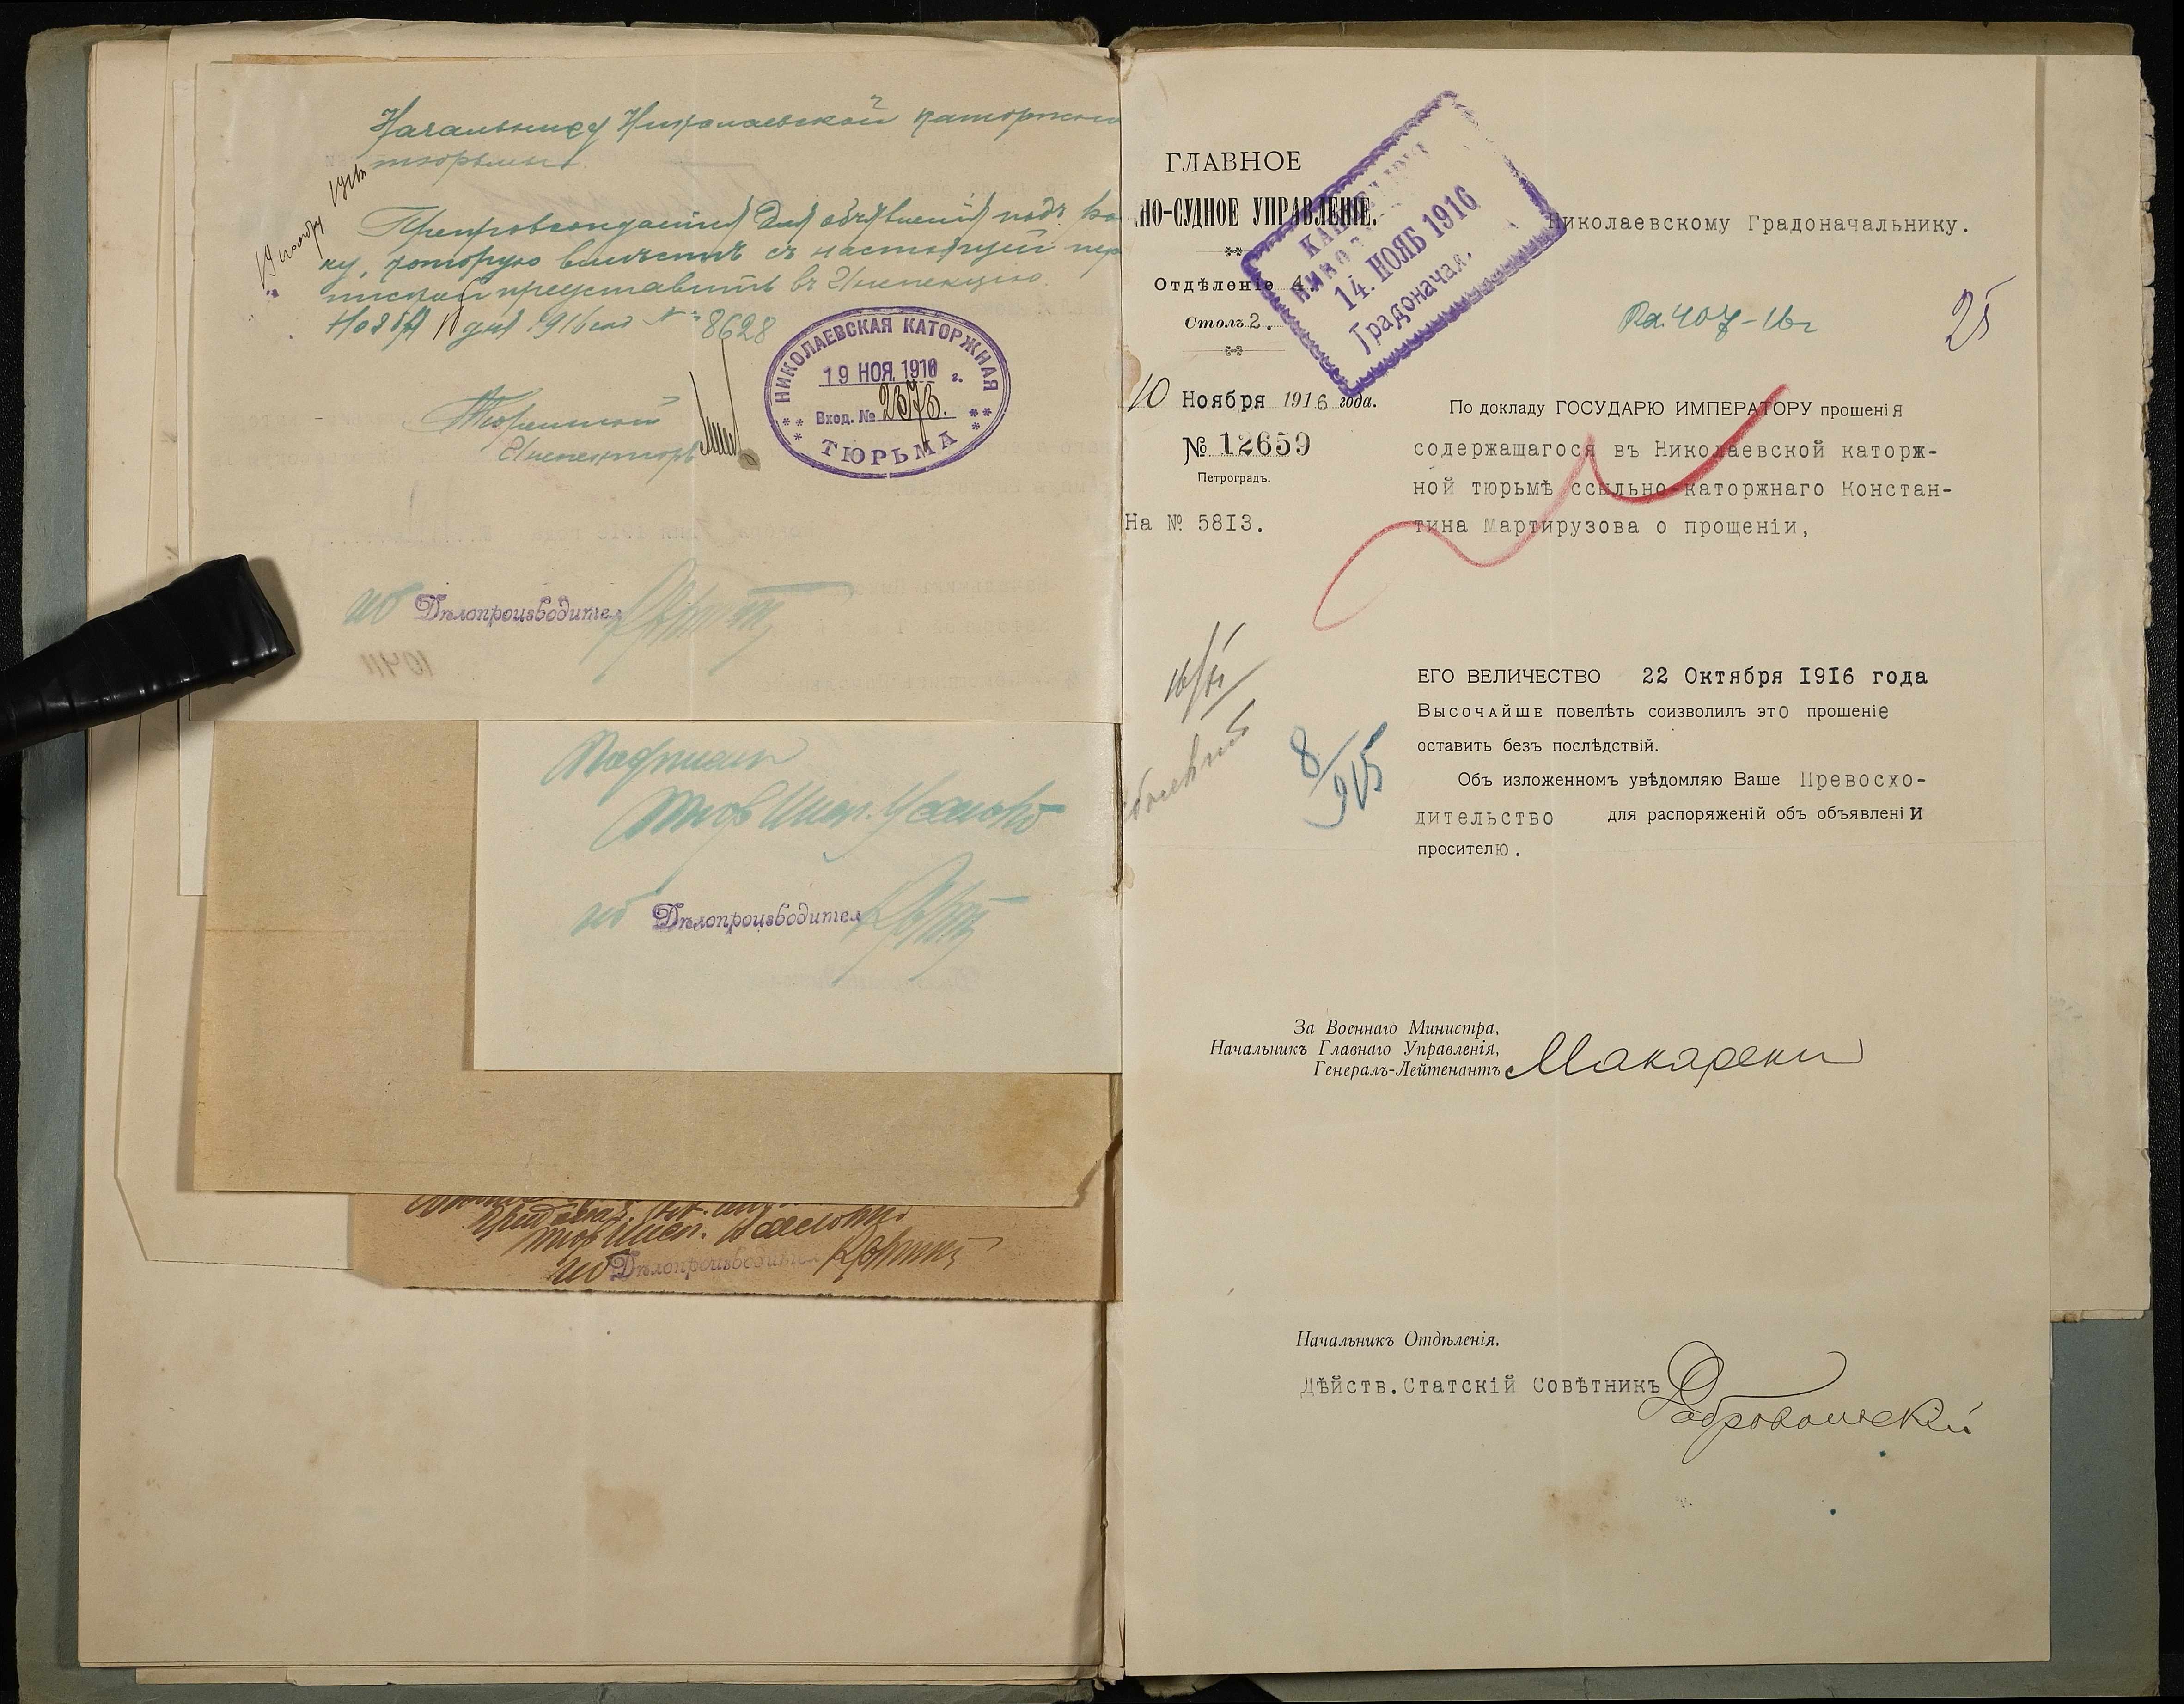 Начальнику Николаевской каторжной
тюрьмы.
Препровождается для объявленія подъ
ку, которую вместѣ съ настоящей пере
пиской представить въ Инспекцію.
Ноября дня 1916 года № 8628
НИКОЛАЕВСКАЯ КАТОРЖНАЯ
19 НОЯ. 1916 г.
Вход. №
ТЮРЬМА
Тюремный
Инспекторъ
ио Дѣлопроизводител
10411
Подписалъ
Тюр Инсп.
ио Дѣлопроизводител
Тюр Инсп.
ио Дѣлопроизводител
ГЛАВНОЕ
НО-СУДНОЕ УПРАВЛЕНІЕ.
Отдѣленіе 4.
Столъ 2.
10 Ноября 1916 года.
№ 12659
Петроградъ.
На № 5813.
14. НОЯБ 1916
Градоначал.
Николаевскому Градоначальнику.
25
По докладу ГОСУДАРЮ ИМПЕРАТОРУ прошенія
содержащагося въ Николаевской каторж-
ной тюрьмѣ ссыльно-каторжнаго Констан-
тина Мартирузова о прощеніи,
16/XI
8/915
ЕГО ВЕЛИЧЕСТВО 22 Октября 1916 года
ВЫСОЧАЙШЕ повелѣть соизволилъ это прошеніе
оставить безъ послѣдствій.
Объ изложенномъ увѣдомляю Ваше Превосхо-
дительство для распоряженій объ объявленіи
просителю.
За Военнаго Министра,
Начальникъ Главнаго Управленія,
Генералъ-Лейтенантъ Макаренко
Начальникъ Отдѣленія.
Дѣйств.Статскій Совѣтникъ Добровольскій